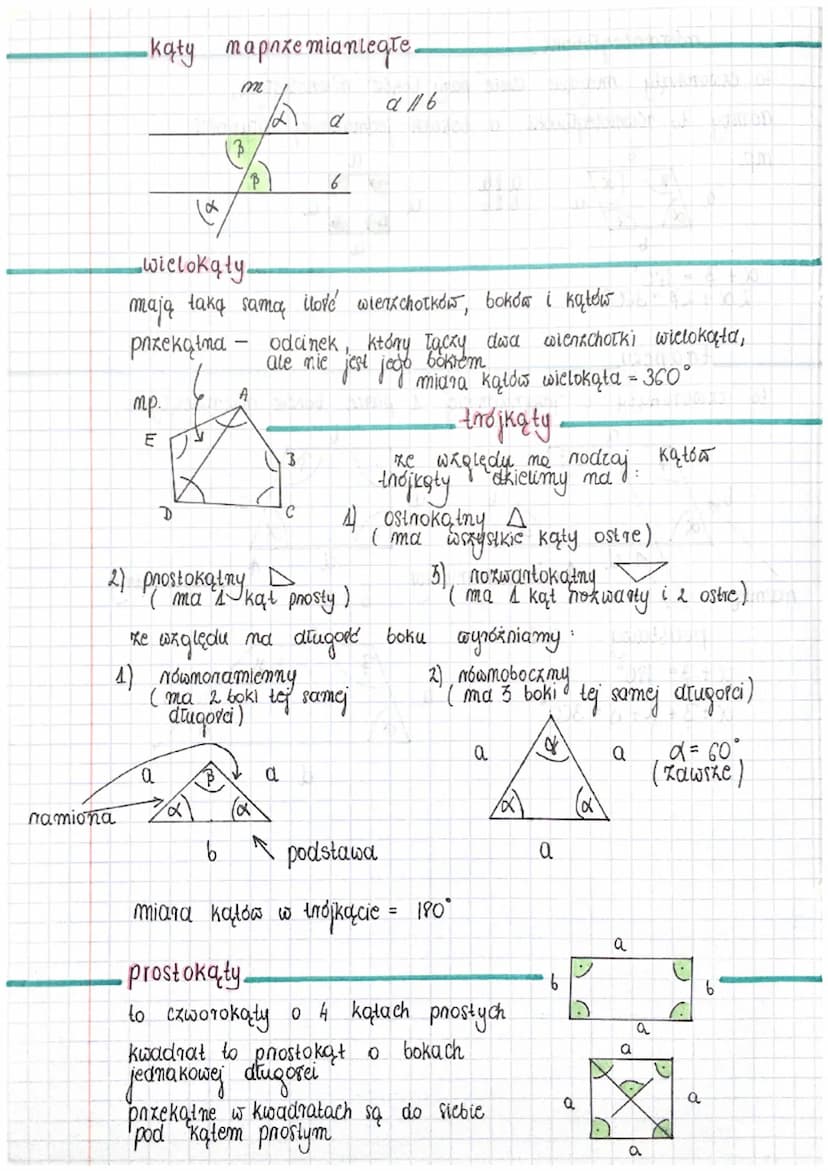 kąty naprzemianległe
m
a // b
α a
β
β b
α
wielokąty
mają taką samą ilość wierzchołków, boków i kątów
przekątna - odcinek, który łączy dwa wierzchołki wielokąta,
ale nie jest jego bokiem
miara kątów wielokąta = 360°
np. A
trójkąty
E
B
ze względu na rodzaj kątów
trójkąty dzielimy na :
D C
1) ostrokątny
( ma wszystkie kąty ostre)
2) prostokątny 3) rozwartokątny
( ma 1 kąt prosty ) ( ma 1 kąt rozwarty i 2 ostre)
ze względu na długość boku wyróżniamy :
1) równoramienny 2) równoboczny
( ma 2 boki tej samej ( ma 3 boki tej samej długości)
długości)
a α a α = 60°
(zawsze)
a β a
ramiona α α α α
b podstawa a
miara kątów w trójkącie = 180°
a
prostokąty b b
to czworokąty o 4 kątach prostych
a
kwadrat to prostokąt o bokach a
jednakowej długości
przekątne w kwadratach są do siebie a a
pod kątem prostym
a